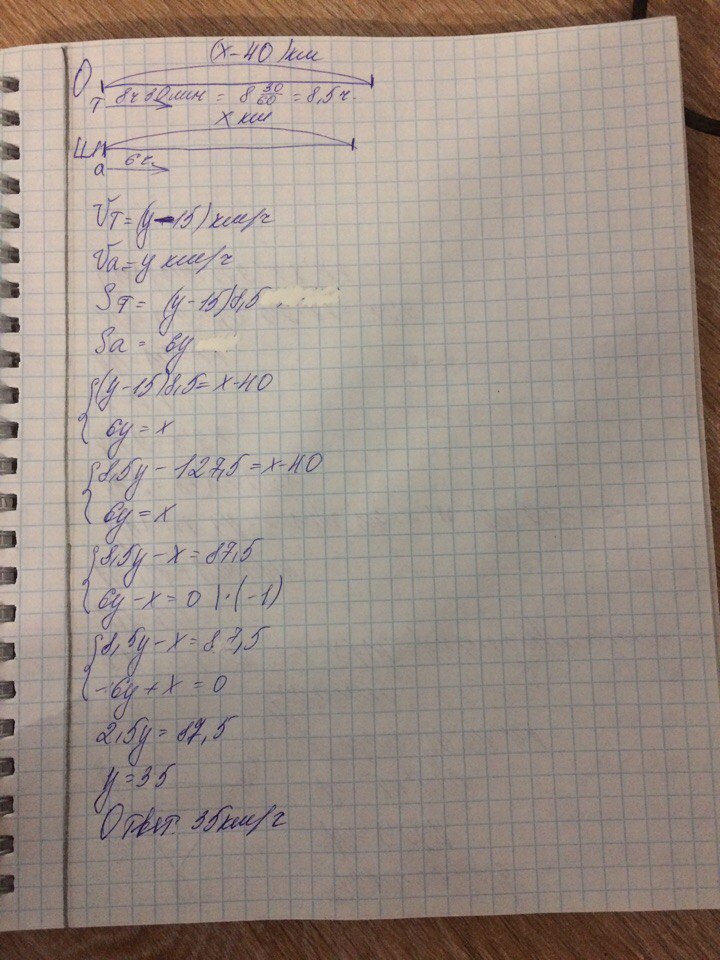 (x-40) км
О
Т 8ч 30 мин = 8 30/60 = 8,5 ч.
x км
Ш
а 6 ч.
Vт = (y-15) км/ч
Vа = y км/ч
Sт = (y-15)8,5
Sа = 6y
{(y-15)8,5 = x-40
6y = x
{8,5y - 127,5 = x-40
6y = x
{8,5y - x = 87,5
6y - x = 0 |·(-1)
{8,5y - x = 87,5
-6y + x = 0
2,5y = 87,5
y = 35
Ответ: 35 км/ч